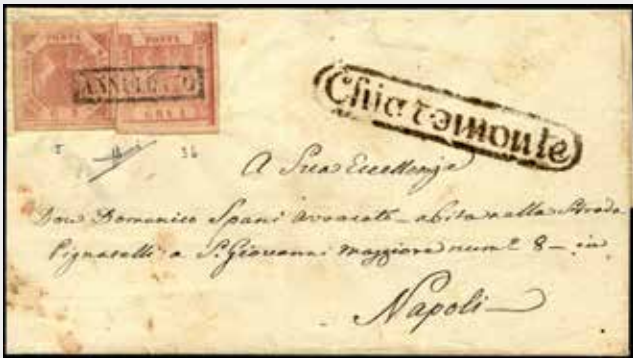 POSTA POSTA
ANNULLATO
Chiaromonte
A Sua Eccellenza
Don Domenico Spani Avvocato - abita nella Strada
Pignatelli a S. Giovanni Maggiore num.º 8 - in
Napoli